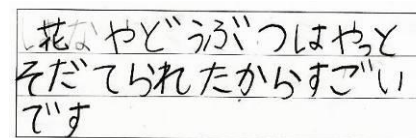 花やどうぶつはやっと
そだてられたからすごい
です